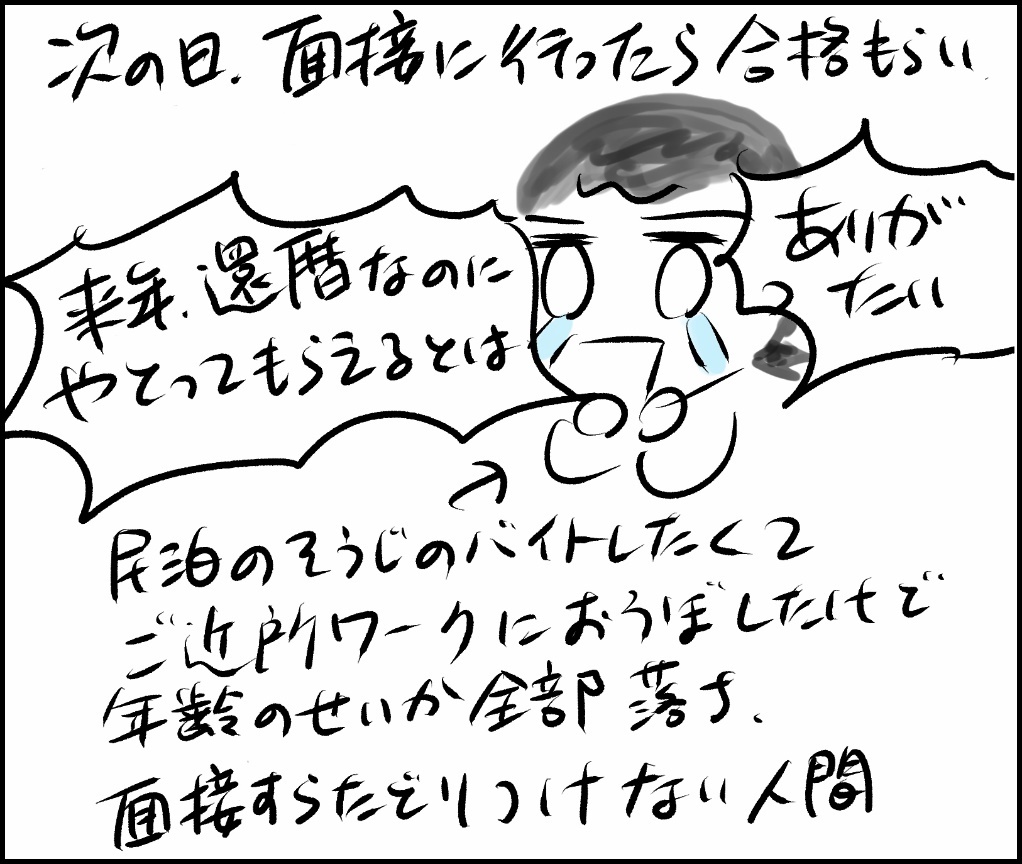 次の日、面接に行ったら合格もらい
ありが
たい
来年、還暦なのに
やとってもらえるとは
民泊のそうじのバイトしたくて
ご近所ワークにおうぼしたけど
年齢のせいか全部落ち、
面接すらたどりつけない人間